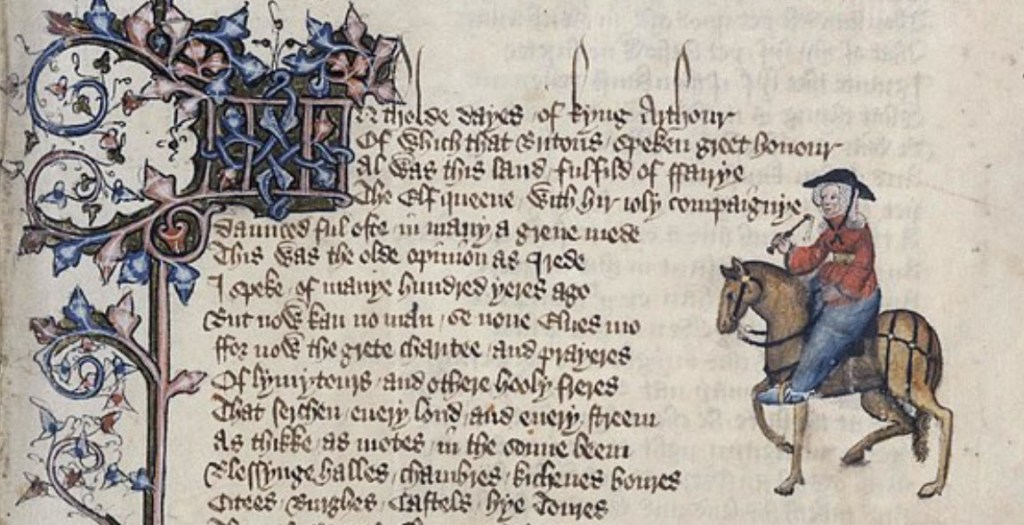 In tholde dayes of kyng Arthour
Of which that Britons speken greet honour
Al was this land fulfild of ffairye
The Elf queene with hir ioly compaignye
Daunced ful ofte in many a grene mede
This was the olde opinion as I rede
I speke of manye hundred yeres ago
But now kan no man se none Elues mo
ffor now the grete charitee and prayeres
Of lymytours and othere hooly freres
That serchen euery lond and euery streem
As thikke as motes in the sonne beem
Blessynge halles chambres kichenes boures
Citees Burghes Castels hye Toures